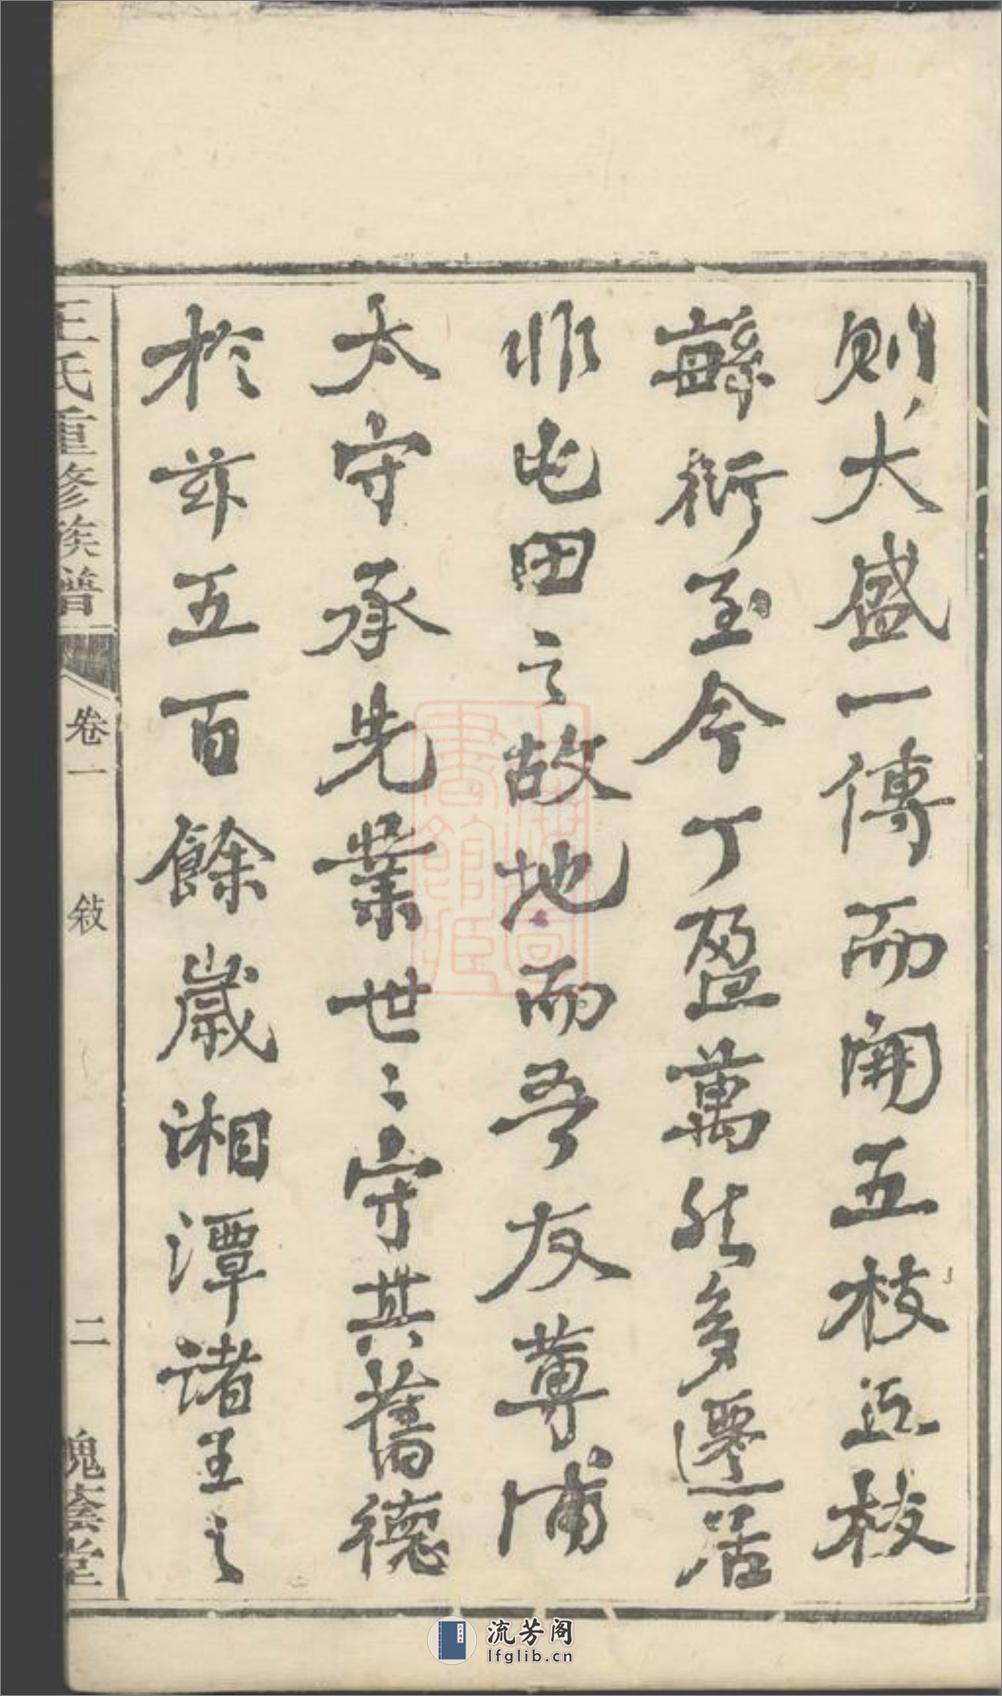 則大盛一傳而開五枝五枝
繇衍至今丁盈萬然多遷居
非屯田之故地而吾友蓴浦
太守承先業世〻守其舊德
於茲五百餘歲湘潭諸王之
王氏重修族譜
卷一
敘
二
槐蔭堂
流芳阁
lfglib.cn